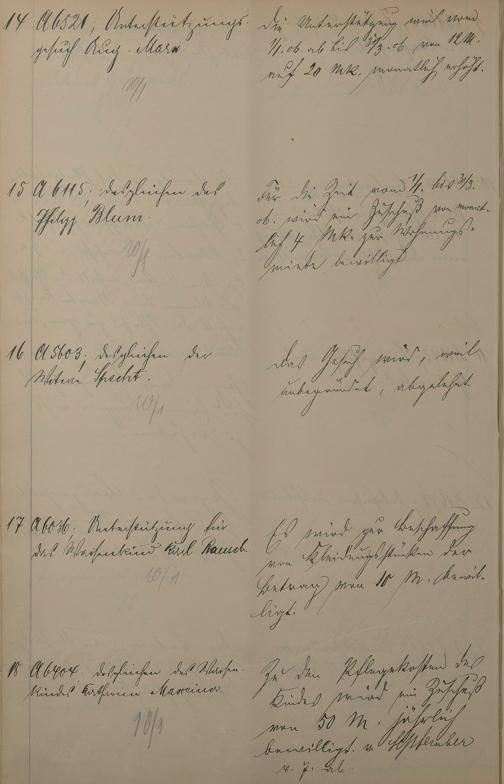 14 A 6521, Unterstützungs-
gesuch Aug. Marx
10/1
Die Unterstützung wird vom
1/1. 06. ab bis 31/3. 06 von 12 M.
auf 20 Mk. monatlich erhöht.
15 A 6115. desgleichen des
Philipp Blum.
10/1
Für die Zeit vom 1/1. bis 31/3.
06. wird ein Zuschuß von monat-
lich 4 Mk. zur Wohnungs-
miete bewilligt
16 A 5603, desgleichen der
Witwe Specht.
10/1
Das Gesuch wird, weil
unbegründet, abgelehnt.
17 A 6036. Unterstützung für
das Waisenkind Karl Rausch
10/1
Es wird zur Beschaffung
von Kleidungsstücken der
Betrag von 10 M. bewil-
ligt.
18 A 6404. desgleichen des Waisen-
kindes Marcina.
10/1
Zu den Pflegekosten des
Kindes wird ein Zuschuß
von 50 M. jährlich
bewilligt. v. September
v. J. ab.